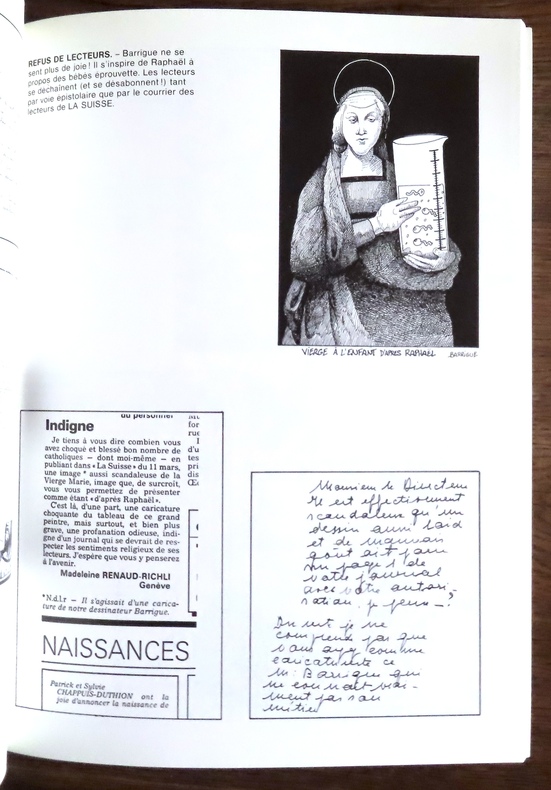 REFUS DE LECTEURS. – Barrigue ne se
sent plus de joie! Il s'inspire de Raphaël à
propos des bébés éprouvette. Les lecteurs
se déchaînent (et se désabonnent!) tant
par voie épistolaire que par le courrier des
lecteurs de LA SUISSE.
VIERGE À L'ENFANT D'APRÈS RAPHAËL BARRIGUE
du personnel
Indigne
Je tiens à vous dire combien vous
avez choqué et blessé bon nombre de
catholiques — dont moi-même — en
publiant dans « La Suisse » du 11 mars,
une image * aussi scandaleuse de la
Vierge Marie, image que, de surcroît,
vous vous permettez de présenter
comme étant « d'après Raphaël ».
C'est là, d'une part, une caricature
choquante du tableau de ce grand
peintre, mais surtout, et bien plus
grave, une profanation odieuse, indi-
gne d'un journal qui se devrait de res-
pecter les sentiments religieux de ses
lecteurs. J'espère que vous y penserez
à l'avenir.
Madeleine RENAUD-RICHLI
Genève
*N.d.l.r — Il s'agissait d'une carica-
ture de notre dessinateur Barrigue.
NAISSANCES
Patrick et Sylvie
CHAPPUIS-DUTHION ont la
joie d'annoncer la naissance de
for
ruc
l
d'u
tes
pri
dis
Monsieur le Directeur
Il est effectivement
scandaleux qu'un
dessin aussi laid
et de mauvais
goût ait paru
en page 1 de
votre journal
avec votre autori-
sation, je pense — ?
je ne
comprends pas que
vous ayez comme
caricaturiste ce
M. Barrigue qui
ne connaît vrai-
ment pas son
métier